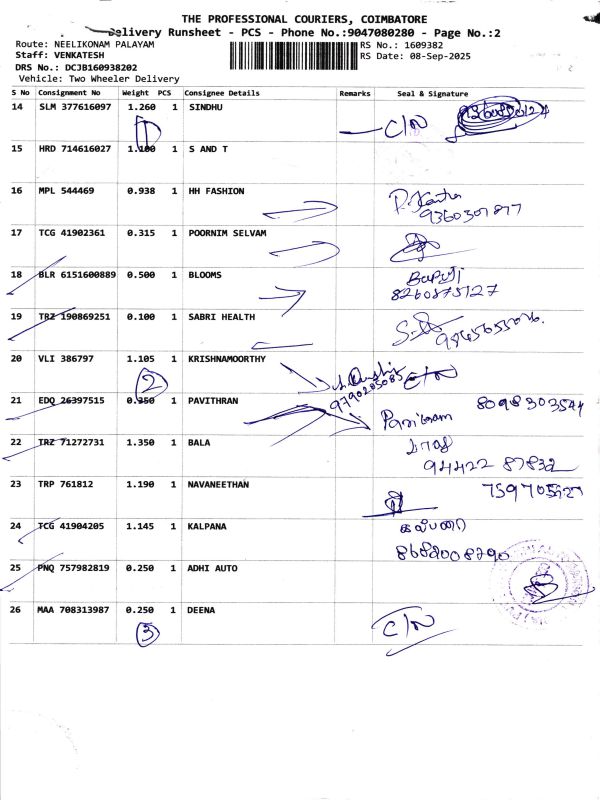 THE PROFESSIONAL COURIERS, COIMBATORE
Delivery Runsheet - PCS - Phone No.:9047080280 - Page No.:2
Route: NEELIKONAM PALAYAM RS No.: 1609382
Staff: VENKATESH RS Date: 08-Sep-2025
DRS No.: DCJB160938202
Vehicle: Two Wheeler Delivery
S No Consignment No Weight PCS Consignee Details Remarks Seal & Signature
14 SLM 377616097 1.260 1 SINDHU
C/N
1
15 HRD 714616027 1.100 1 S AND T
16 MPL 544469 0.938 1 HH FASHION
9360301877
17 TCG 41902361 0.315 1 POORNIM SELVAM
18 BLR 6151600889 0.500 1 BLOOMS
Bapuji
8260875127
19 TRZ 190869251 0.100 1 SABRI HEALTH
20 VLI 386797 1.105 1 KRISHNAMOORTHY
C/N
2
9790205085
21 EDQ 26397515 0.350 1 PAVITHRAN
8098303544
22 TRZ 71272731 1.350 1 BALA
94422 87832
23 TRP 761812 1.190 1 NAVANEETHAN
24 TCG 41904205 1.145 1 KALPANA
கல்பனா
8682008790
25 PNQ 757982819 0.250 1 ADHI AUTO
26 MAA 708313987 0.250 1 DEENA
C/N
3